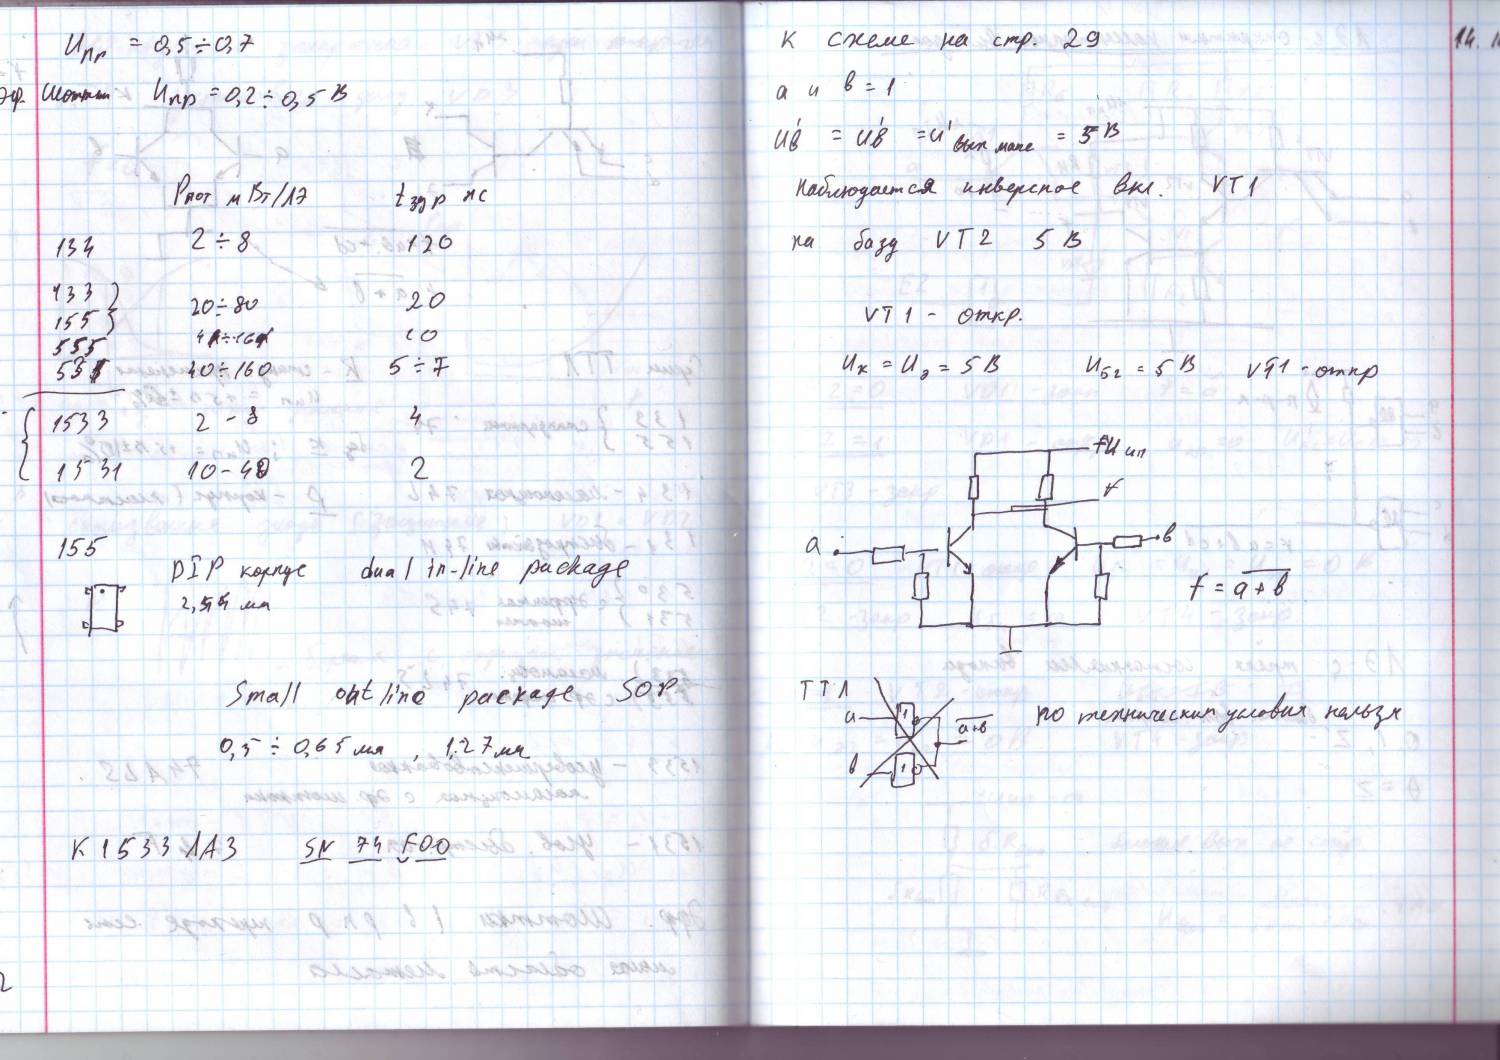 Uпр = 0,5÷0,7
эф. Шоттки Uпр = 0,2÷0,5 В
Pпот мВт/ЛЭ tздр нс
134 2÷8 120
133
155 20÷80 20
555 10
531 40÷160 5÷7
1533 2-8 4
1531 10-40 2
155
DIP корпус dual in-line package
2,54 мм
Small outline package SOP
0,5÷0,65 мм, 1.27 мм
К1533 ЛА3 SN 74 F00
к схеме на стр. 29
а и в = 1
= 5 В
наблюдается инверсное вкл. VT1
на базу VT2 5 В
VT1 - откр.
Uк = Uэ = 5 В Uб2 = 5 В VT1 - откр
+Uип
f
a
в
f = a+в
ТТЛ
a 1 a+в
в 1
по техническим условия нельзя
14.
2